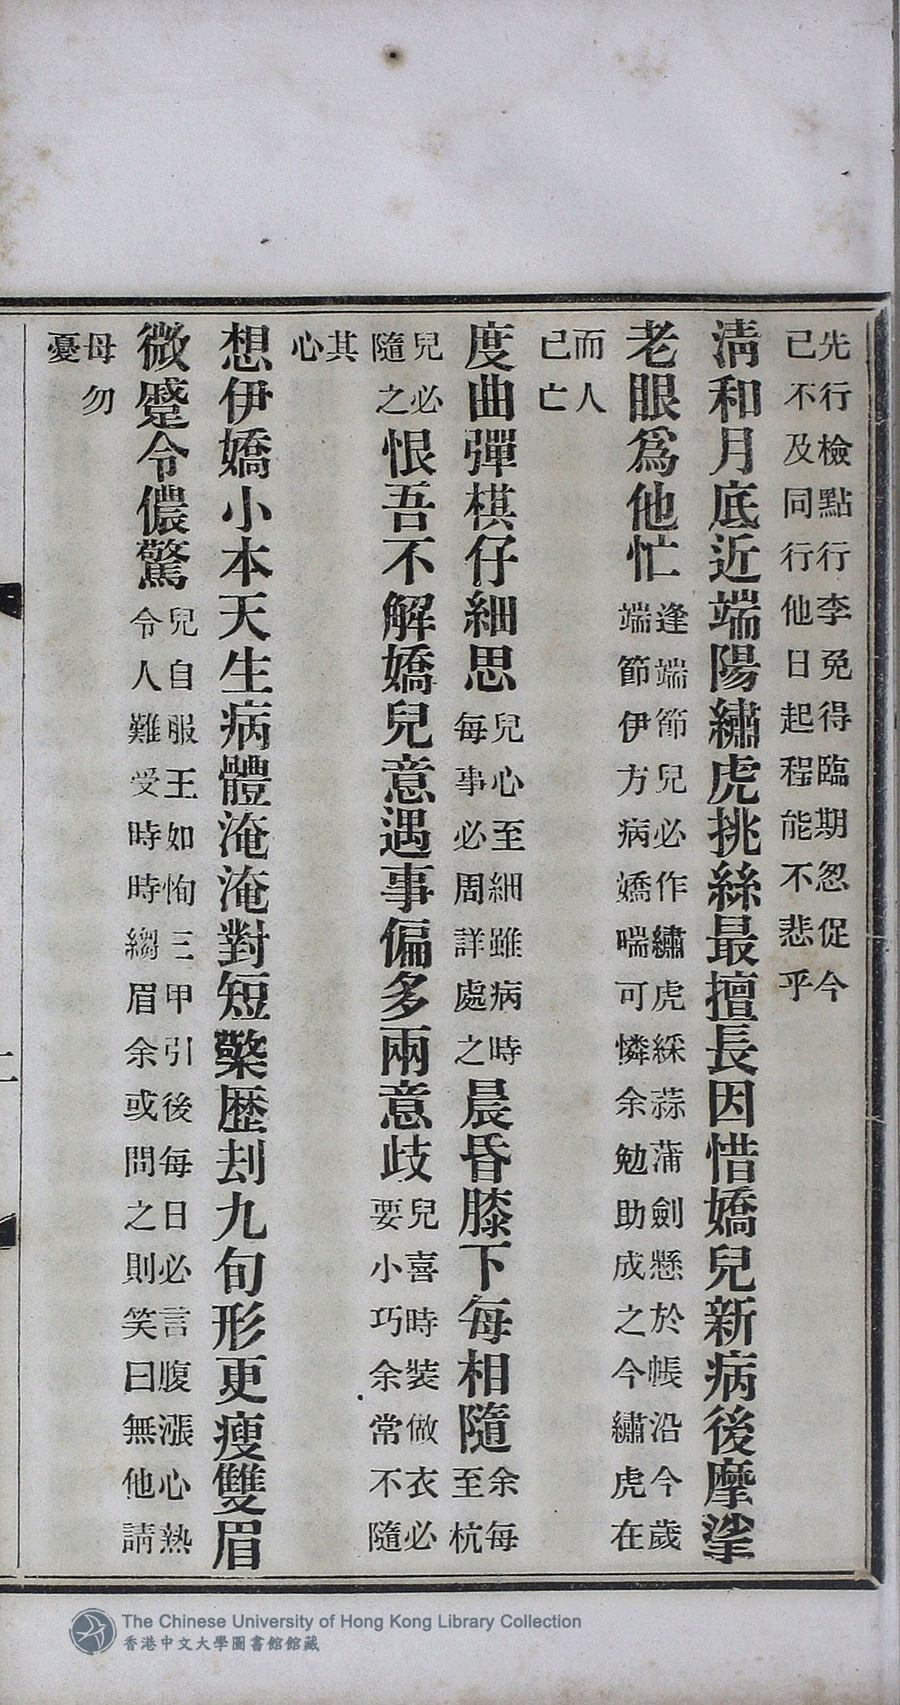 先行檢點行李免得臨期忽促今
已不及同行他日起程能不悲乎
淸和月底近端陽繡虎挑絲最擅長因惜嬌兒新病後摩挲
老眼爲他忙
逢端節兒必作繡虎綵蒜蒲劍懸於帳沿今歲
端節伊方病嬌喘可憐余勉助成之今繡虎在
而人
已亡
度曲彈棋仔細思
兒心至細雖病時
每事必周詳處之
晨昏膝下每相隨
余每
至杭
兒必
隨之
恨吾不解嬌兒意遇事偏多兩意歧
兒喜時裝做衣必
要小巧余常不隨
其
心
想伊嬌小本天生病體淹淹對短檠歷刦九旬形更瘦雙眉
微蹙令儂驚
兒自服王如恂三甲引後每日必言腹漲心熱
令人難受時時縐眉余或問之則笑曰無他請
母勿
憂
The Chinese University of Hong Kong Library Collection
香港中文大學圖書館館藏